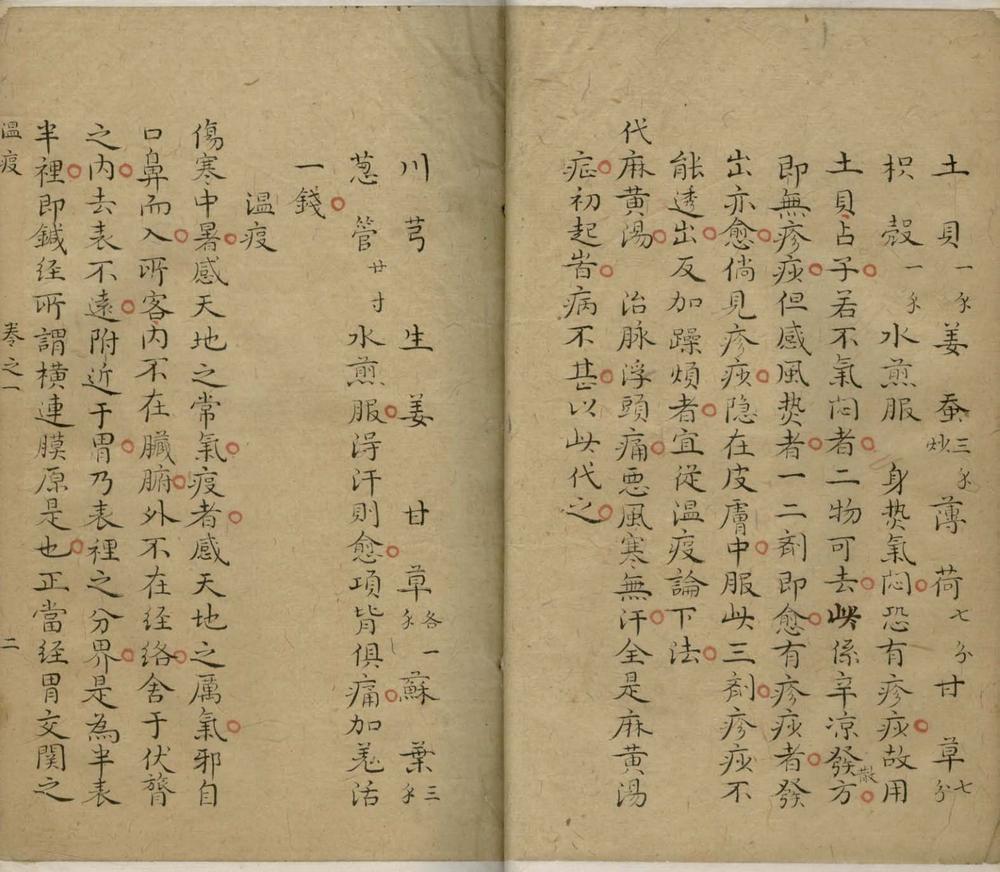 土貝一錢姜蚕炒三錢薄荷七分甘草七分
枳殼一錢水煎服 身热氣悶恐有疹痧故用
土貝占子若不氣闷者二物可去此係辛凉發散方
即無疹痧但感風热者一二劑即愈有疹痧者發
出亦愈倘見疹痧隐在皮膚中服此三劑疹痧不
能透出反加躁煩者宜從温疫論下法
代麻黄湯 治脉浮頭痛悪風寒無汗全是麻黄湯
症初起者病不甚以此代之
川芎 生姜 甘草各一錢 蘇葉三錢
葱管廿寸 水煎服淂汗則愈項背俱痛加羌活
一錢
温疫
傷寒中暑感天地之常氣疫者感天地之厲氣邪自
口鼻而入所客内不在臓腑外不在经络舍于伏膂
之内去表不遠附近于胃乃表裡之分界是為半表
半裡即鍼经所謂横連膜原是也正當经胃交関之
温疫 卷之一 二